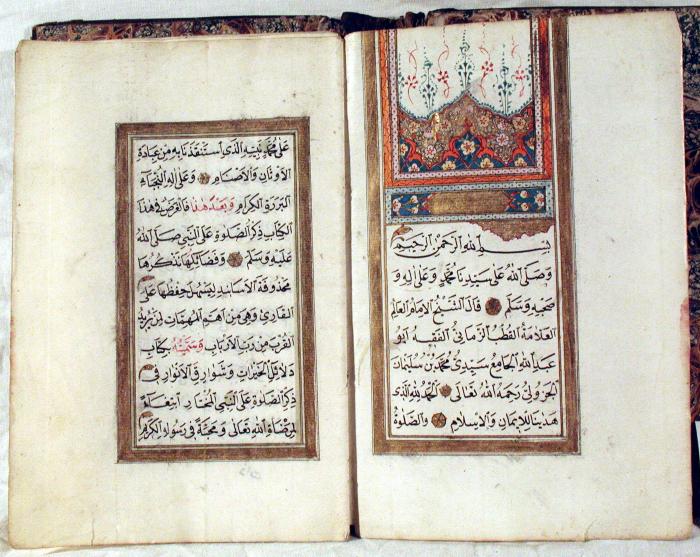 بسم الله الرحمن الرحيم
وصلى الله على سيدنا محمد وعلى اله و
صحبه وسلم قال الشيخ الامام العالم
العلامة القطب الزماني الفقيه ابو
عبد الله الجامع سيدي محمد بن سليمان
الجزولي رحمه الله تعالى الحمد لله الذي
هدينا للايمان والاسلام والصلوة
على محمد نبيه الذي استنقذنا به من عبادة
الاوثان والاصنام وعلى اله النجباء
البررة الكرام وبعد هذا فالغرض في هذا
الكتاب ذكر الصلوة على النبي صلى الله
عليه وسلم وفضائلها نذكرها
محذوفة الاسانيد ليسهل حفظها على
القاري وهي من اهم المهمات لمن يريد
القرب من رب الارباب وسميته بكتاب
دلائل الخيرات وشوارق الانوار في
ذكر الصلوة على النبي المختار ابتغاء
لمرضاة الله تعالى ومحبة في رسوله الكريم